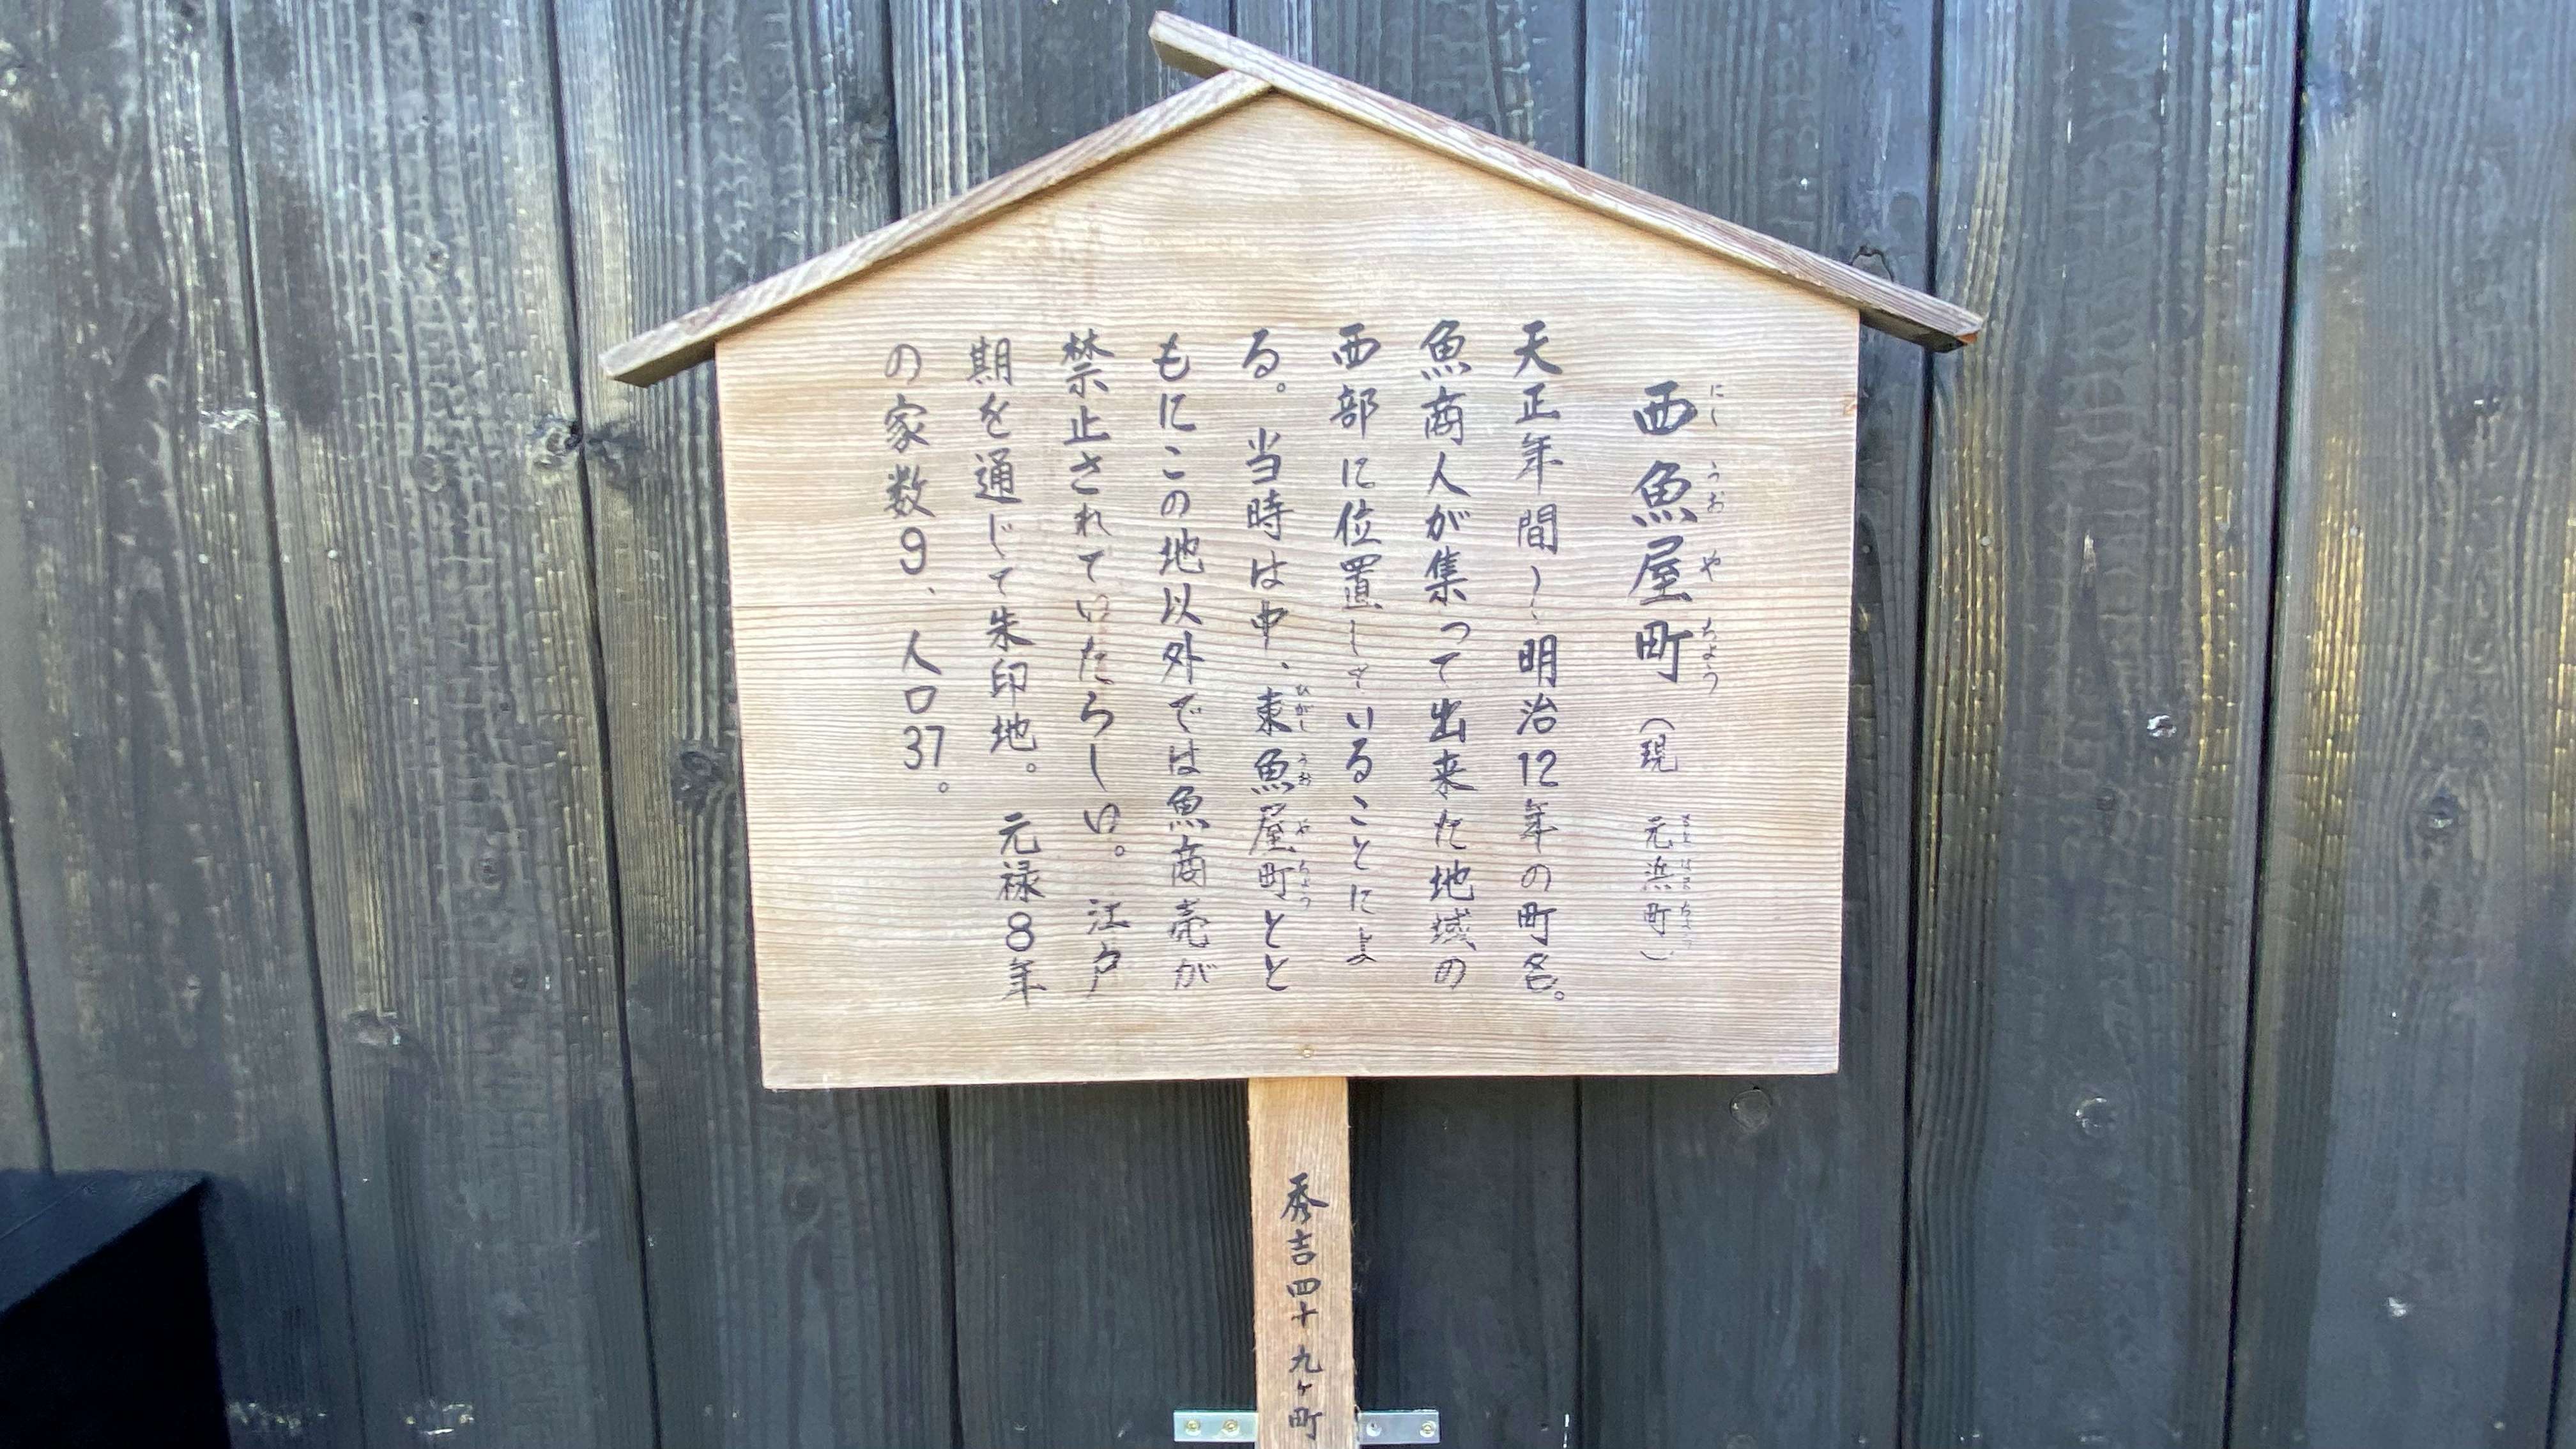 西魚屋町（現 元浜町）
にし うお や ちょう もとはまちょう
天正年間〜明治12年の町名。
魚商人が集って出来た地域の
西部に位置していることによ
る。当時は中、東魚屋町とと
ひがし うお や ちょう
もにこの地以外では魚商売が
禁止されていたらしい。江戸
期を通じて朱印地。元禄8年
の家数9、人口37。
秀吉四十九ヶ町